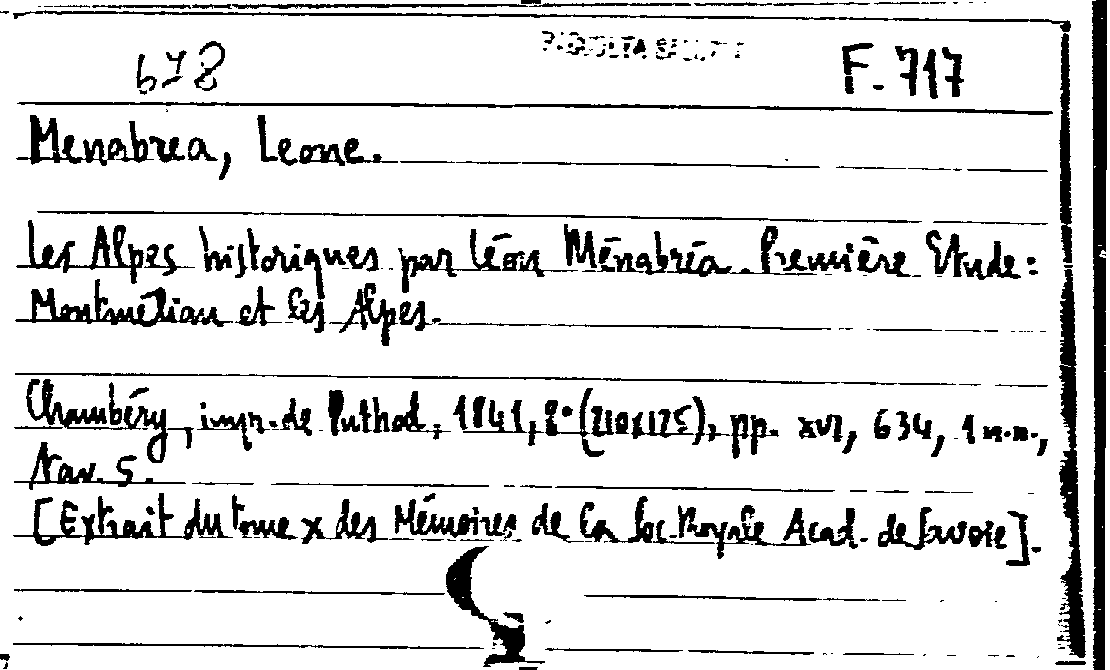 678 F. 717
Menabrea, Leone.
Les Alpes historiques par Léon Ménabréa. Première Etude:
Montmélian et les Alpes.
Chambéry, impr. de Puthod, 1841, 8° (210x125), pp. XVI, 634, 1 n.n.,
tav. 5.
[Extrait du tome X des Mémoires de la Soc. Royale Acad. de Savoie].